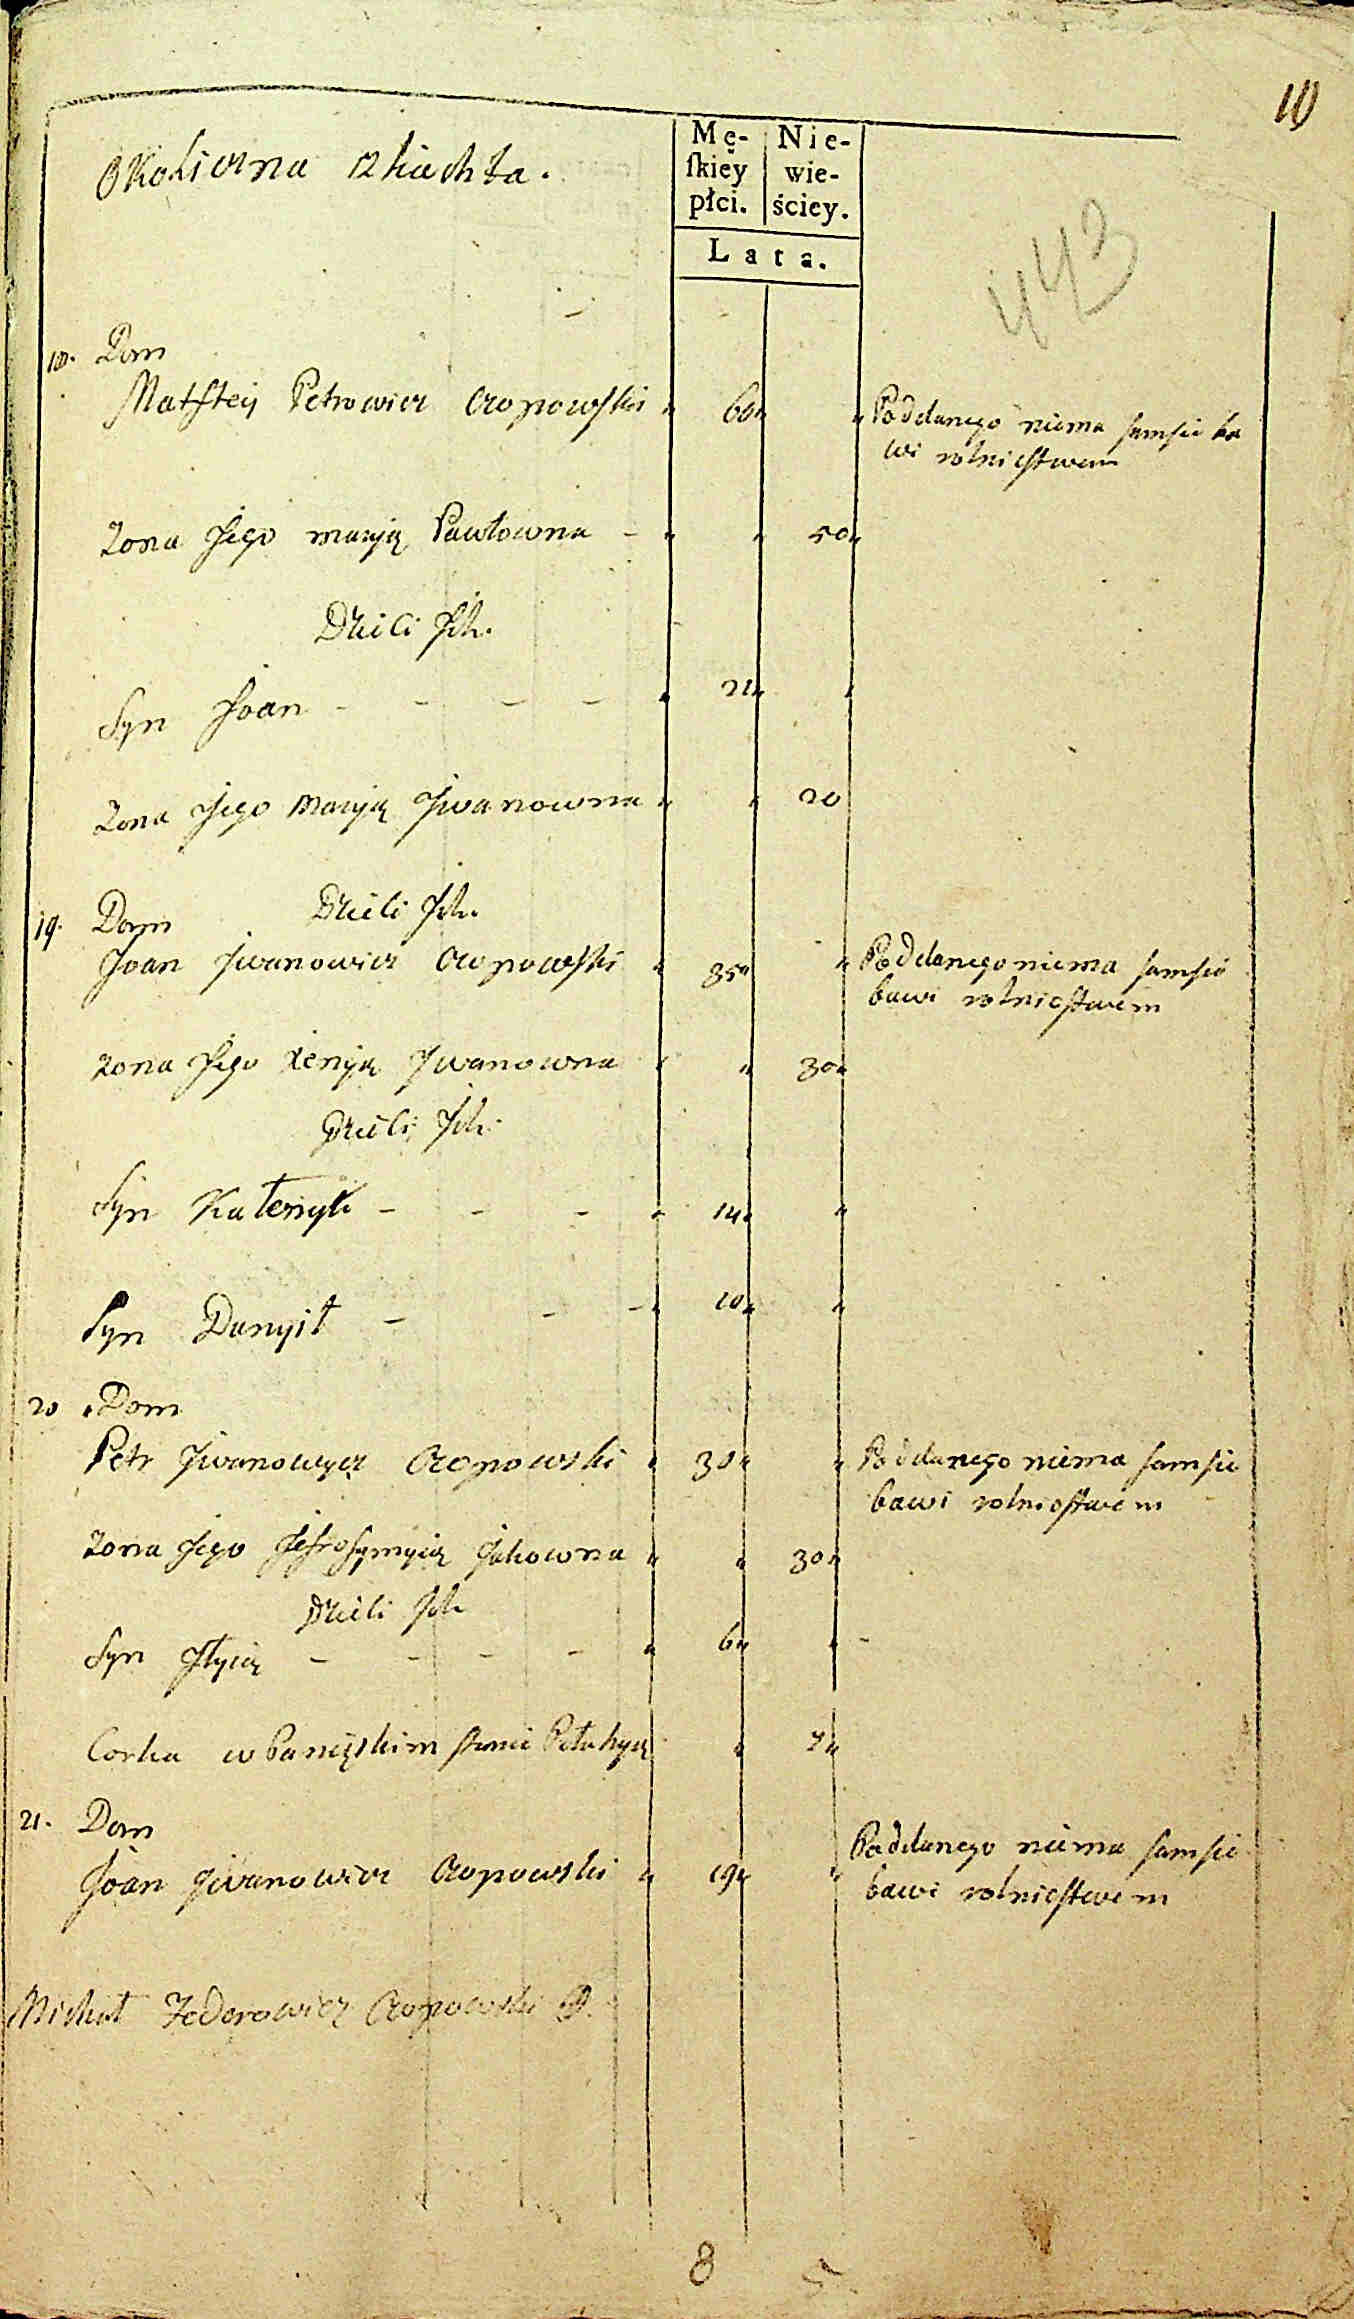 10
Okoliczna szlachta.
Mę-
ſkiey
płci.
Nie-
wie-
ściey.
Lata.
443
18. Dom
Matftey Petrowicz Czopowſki " 60 " " Poddanego niema ſamſie ba
wi rolnictwem
Zona Jego maryią Pawłowna - " " 50 "
Dzieci Jch.
Syn Joan - - - - " 21 " "
Zona Jego maryią Jwanowna " " 20
Dzieci Jch.
19. Dom
Joan Jwanowicz Czopowſki " 35 " " Poddanego niema ſamſie
bawi rolnictwem
zona Jego xenyią Jwanowna " " 30 "
Dzieci Jch.
Syn Katenyk - - - " 14 " "
Syn Danyił - - - " 10 " "
20 Dom
Petr Jwanowycz Czopowski " 30 " " Poddanego niema ſamſie
bawi rolnictwem
Zona Jego Jakowna " " 30 "
Dzieci Jch
Syn - - - - " 6 " " -
Corka w Panięskim ſtanie " 7 "
21. Dom
Joan Jwanowicz Czopowski " 19 " " Poddanego niema ſamſie
bawi rolnictwem
Michał Fedorowicz Czopowski
8 5